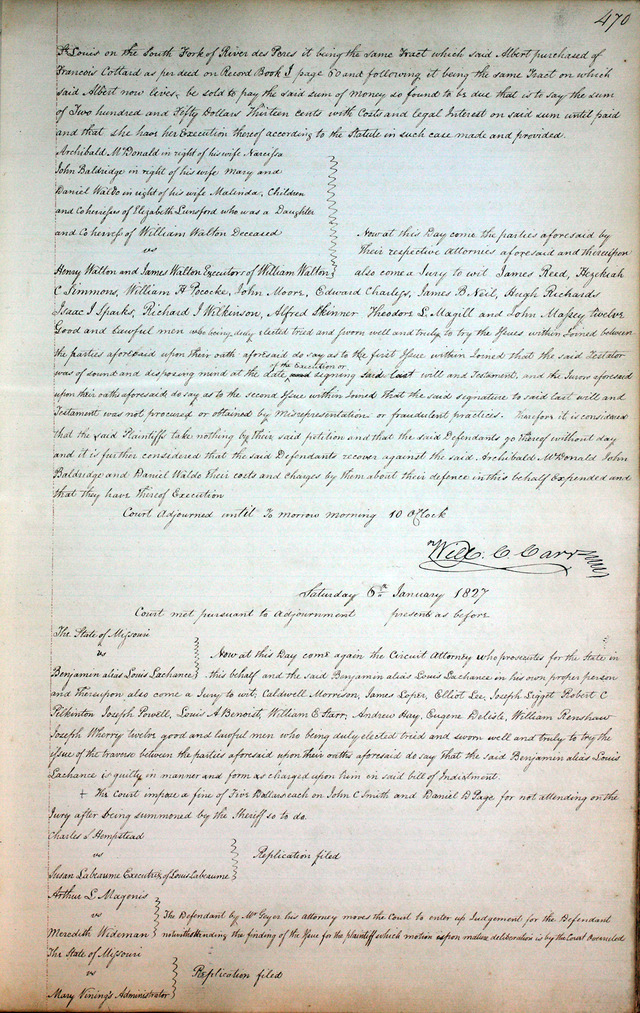 470
St Louis on the South Fork of River des Peres it being the same Tract which said Albert purchased of
Francois Cottard as per deed on Record Book I page 60 and following it being the same Tract on which
said Albert now lives, be sold to pay the said sum of money so found to be due that is to say the sum
of Two hundred and Fifty Dollars Thirteen cents with Costs and legal Interest on said sum until paid
and that she have her Execution thereof according to the Statute in such case made and provided.
Archibald McDonald in right of his wife Narcissa
John Baldridge in right of his wife Mary and
Daniel Waldo in right of his wife Malinda, Children
and Coheiresses of Elizabeth Lunsford who was a Daughter
and Coheiress of William Walton Deceased
vs
Henry Walton and James Walton Executors of William Walton
Now at this Day come the parties aforesaid by
their respective Attornies aforesaid and thereupon
also come a Jury to wit James Reed, Hezekiah
C Simmons, William H Pococke, John Moore, Edward Charless, James B Neil, Hugh Richards
Isaac I Sparks, Richard J Wilkinson, Alfred Skinner Theodore L Magill and John Massey twelve
Good and lawful men who being duly elected tried and sworn well and truly to try the Issues within Joined between
the parties aforesaid upon their oath aforesaid do say as to the first Issue within Joined that the said Testator
was of sound and disposing mind at the date of the Execution or signing said last will and Testament, and the Jurors aforesaid
upon their oaths aforesaid do say as to the second Issue within Joined that the said signature to said last will and
Testament was not procured or obtained by misrepresentation or fraudulent practices. Therefore it is considered
that the said Plaintiffs take nothing by their said petition and that the said Defendants go thereof without day
and it is further considered that the said Defendants recover against the said Archibald McDonald John
Baldridge and Daniel Waldo their costs and charges by them about their defence in this behalf Expended and
that they have thereof Execution
Court Adjourned until To morrow morning 10 O'Clock
Will. C Carr
Saturday 6th January 1827
Court met pursuant to adjournment present as before
The State of Missouri
vs
Benjamin alias Louis Lachance
Now at this Day come again the Circuit Attorney who prosecutes for the State in
this behalf and the said Benjamin alias Louis Lachance in his own proper person
and thereupon also come a Jury to wit, Caldwell Morrison, James Loper, Elliot Lee, Joseph Ligget Robert C
Pilkinton Joseph Powell, Louis A Benoist, William E Starr, Andrew Hay, Eugene Delisle, William Renshaw
Joseph Wherry twelve good and lawful men who being duly elected tried and sworn well and truly to try the
issue of the traverse between the parties aforesaid upon their oaths aforesaid do say that the said Benjamin alias Louis
Lachance is guilty in manner and form as charged upon him in said bill of Indictment.
+ The Court impose a fine of Five Dollars each on John C Smith and Daniel D Page for not attending on the
Jury after being summoned by the Sheriff so to do.
Charles S Hempstead
vs
Susan Labeaume Executrix of Louis Labeaume
Replication filed
Arthur L Magenis
vs
Meredith Wideman
The Defendant by Mr Geyer his attorney moves the Court to enter up Judgement for the Defendant
notwithstanding the finding of the Issue for the plaintiff which motion is upon mature deliberation is by the Court Overruled
The State of Missouri
vs
Mary Vining's Administrator
Replication filed